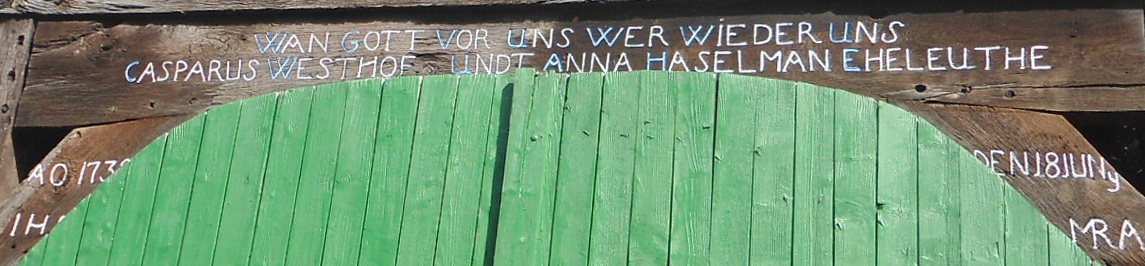 WAN GOTT VOR UNS WER WIEDER UNS
CASPARUS WESTHOF UNDT ANNA HASELMAN EHELEUTHE
AO 173
DEN 18 JUNY
IH
MRA